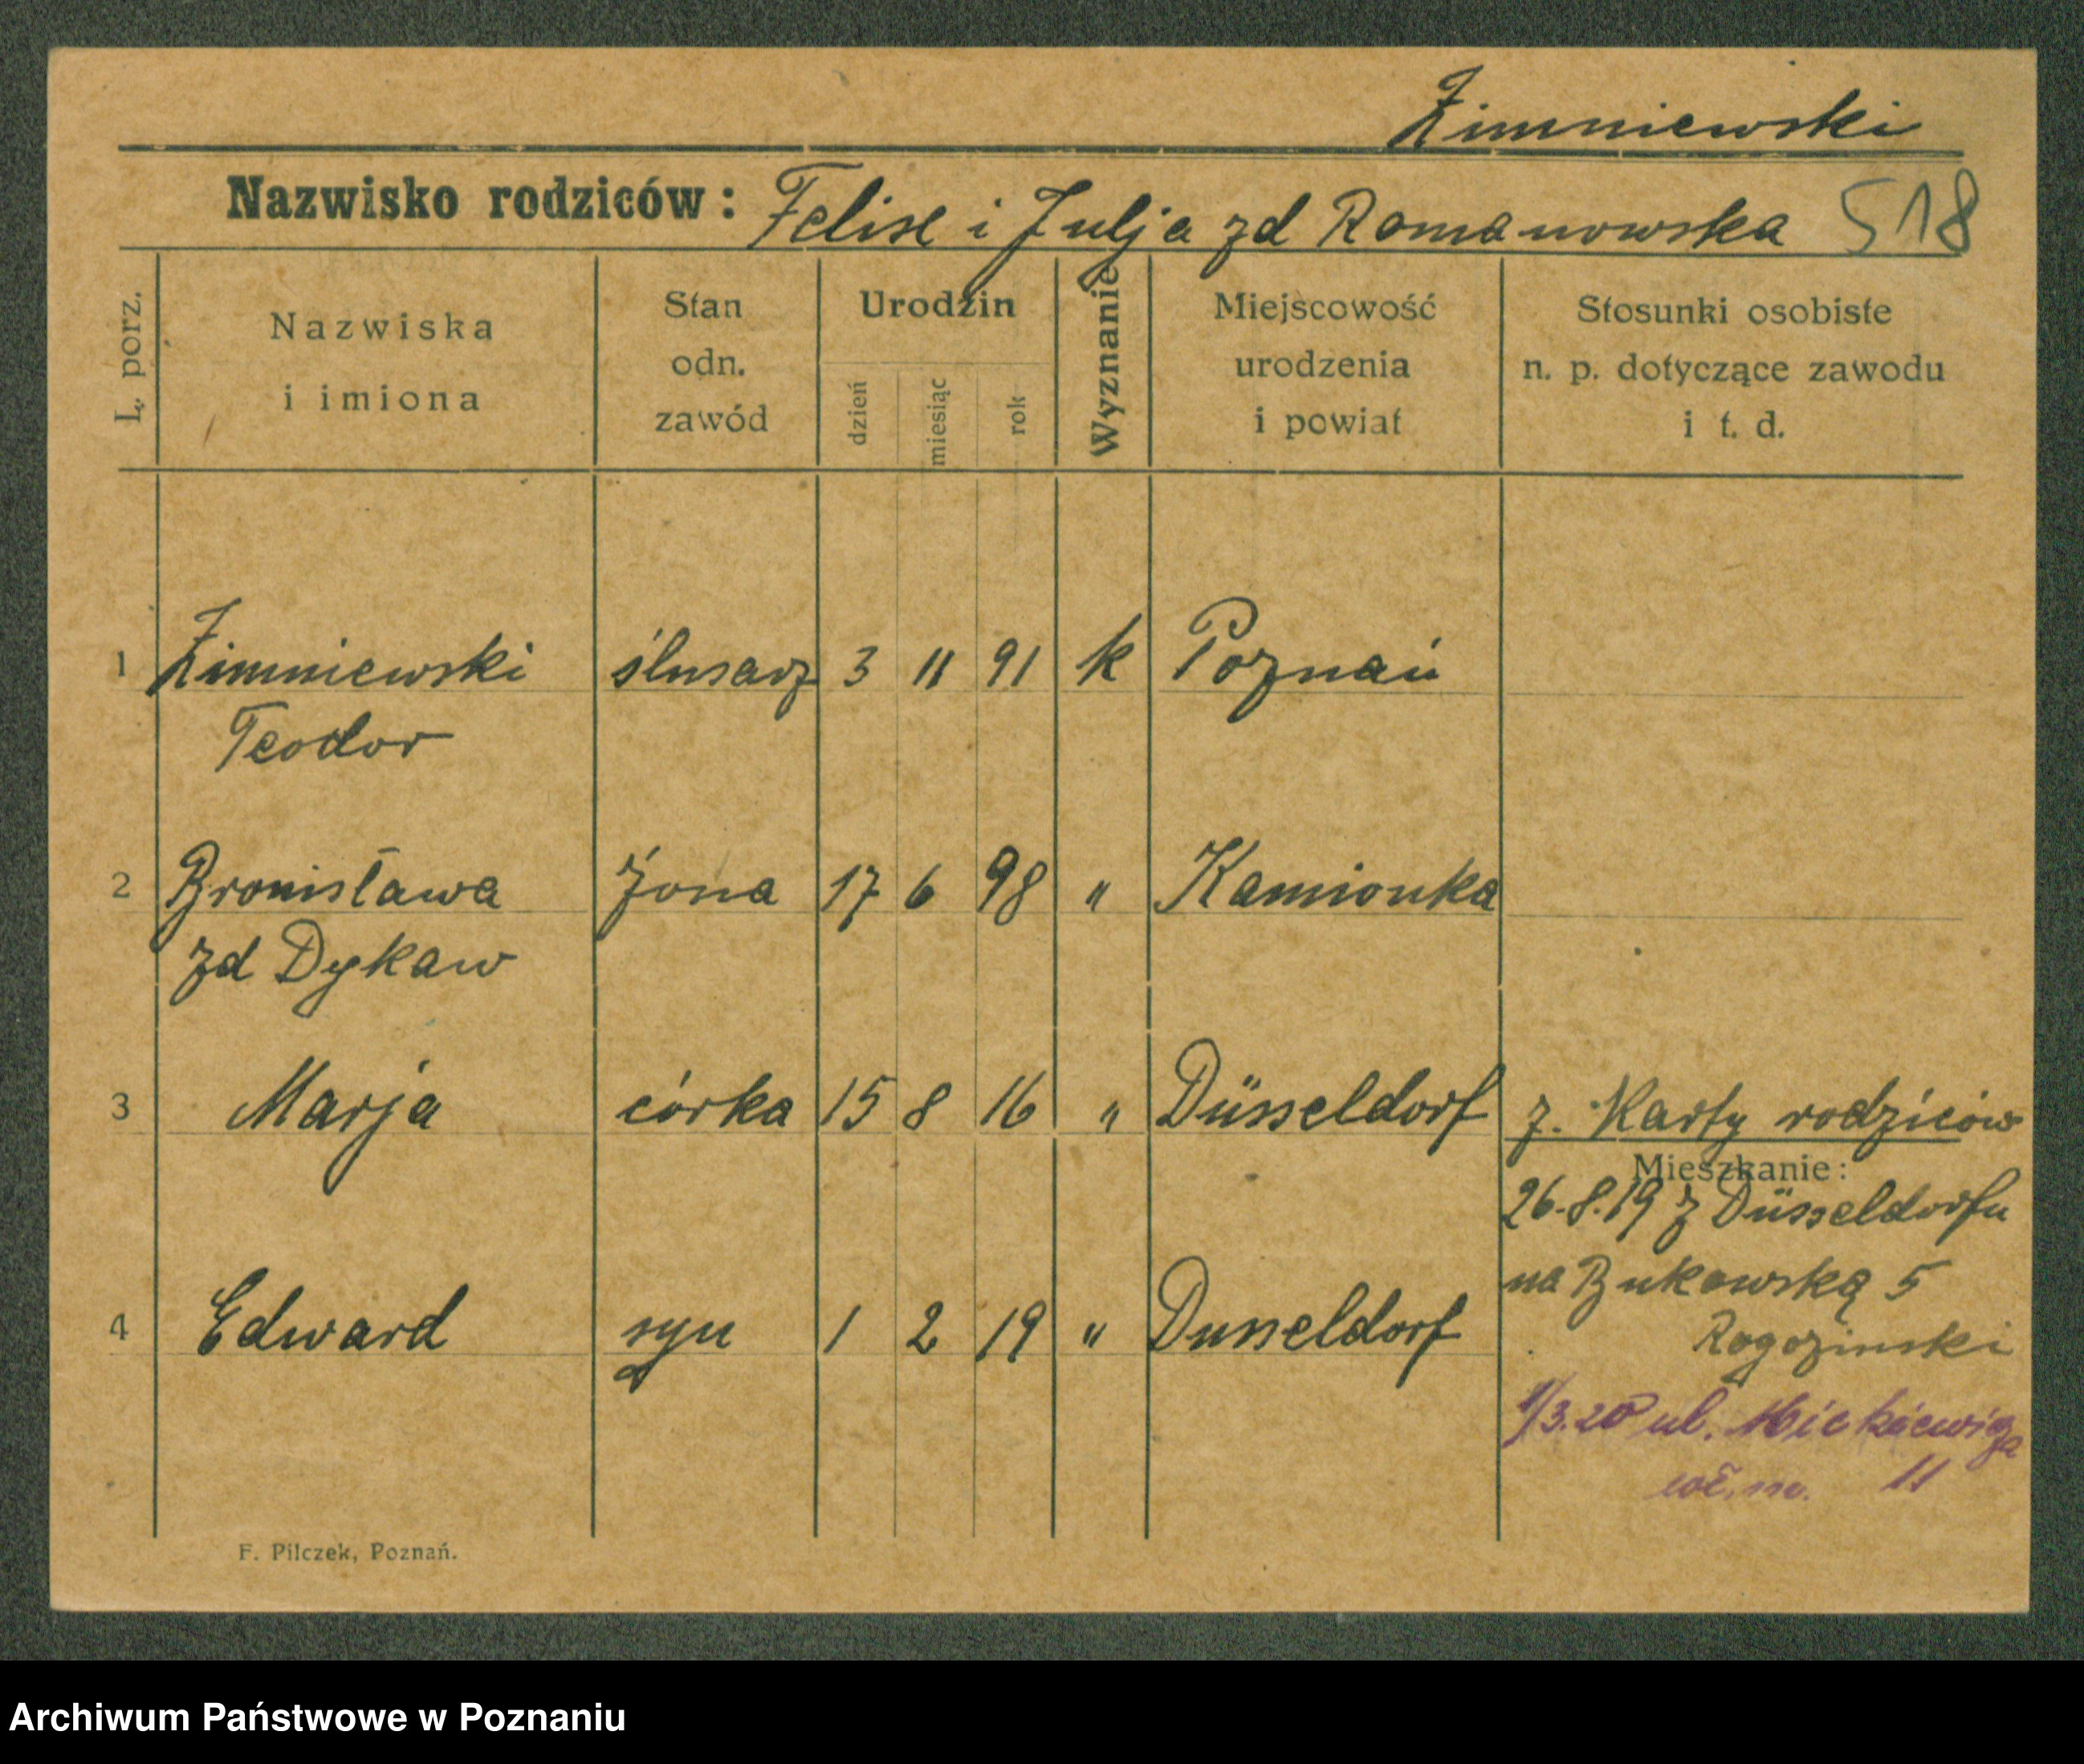 Zimniewski
Nazwisko rodziców: Felix i Julja zd Romanowska 518
L. porz.
Nazwiska
i imiona
Stan
odn.
zawód
Urodzin
dzień
miesiąc
rok
Wyznanie
Miejscowość
urodzenia
i powiat
Stosunki osobiste
n. p. dotyczące zawodu
i t. d.
1 Zimniewski ślusarz 3 11 91 k Poznań
Teodor
2 Bronisława żona 17 6 98 " Kamionka
zd Dykaw
3 Marja córka 15 8 16 " Düsseldorf z. Karty rodziców
Mieszkanie:
26.8.19 z Düsseldorfu
na Bukowską 5
Rogozinski
4 Edward syn 1 2 19 " Dusseldorf
1/3.20 ul. Mickiewicza
11
F. Pilczek, Poznań.
Archiwum Państwowe w Poznaniu